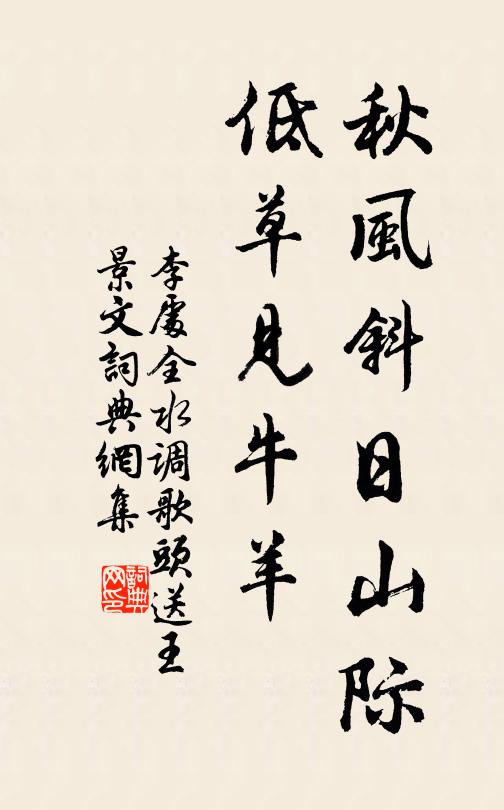 秋風斜日山际
低草見牛羊
李處全水调歌頭送王
景文詞典網集
詞典
网印